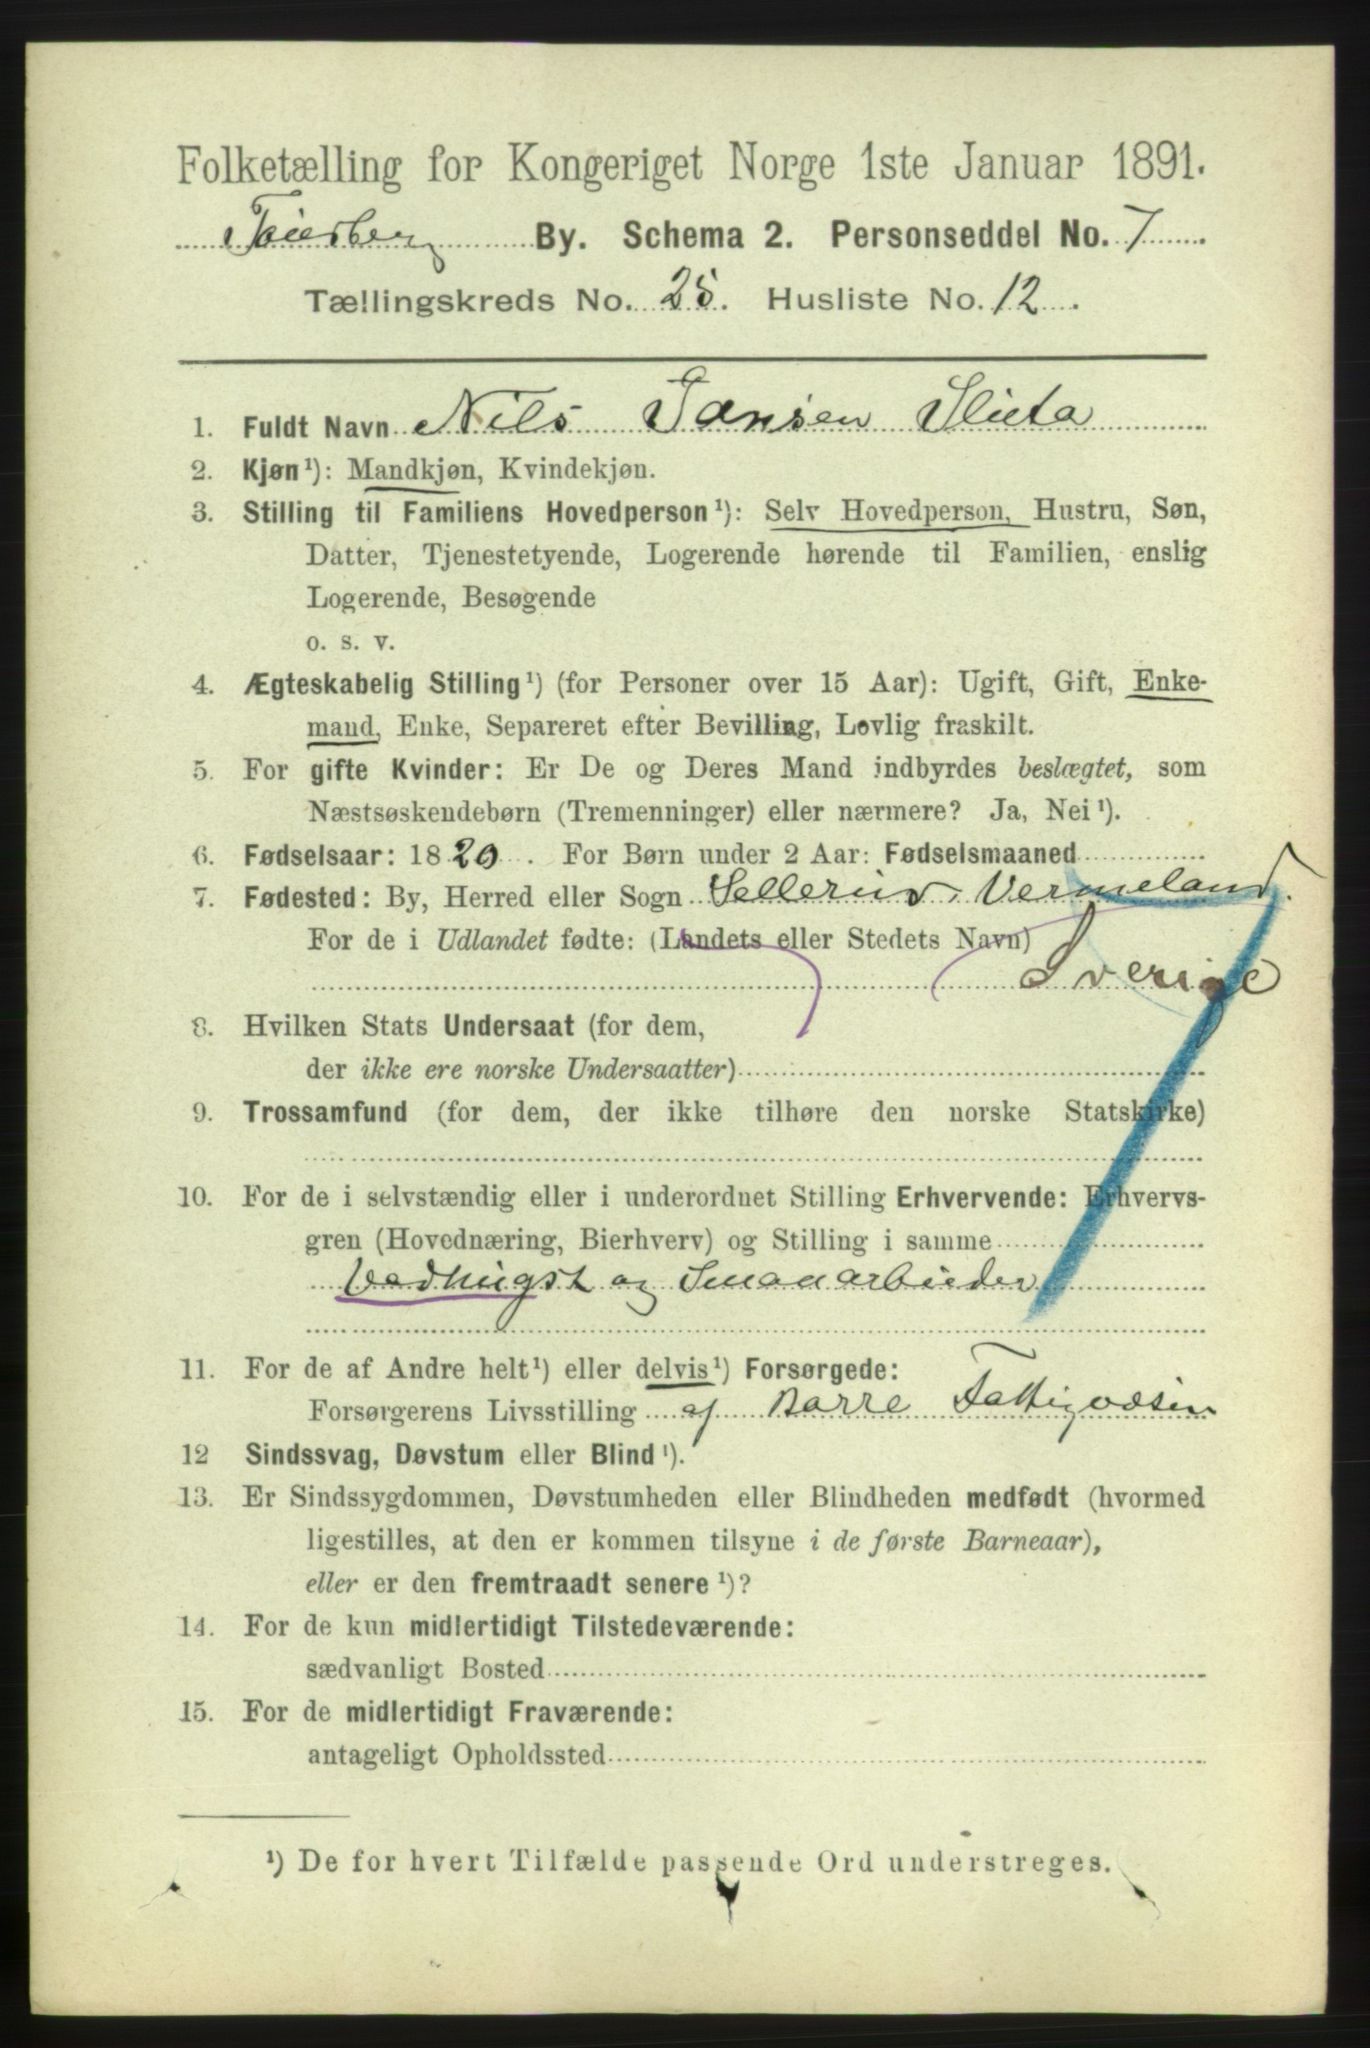 Folketælling for Kongeriget Norge 1ste Januar 1891.
By. Schema 2. Personseddel No. 7
Tællingskreds No. 25. Husliste No. 12.
1. Fuldt Navn Nils Jansen Slieta
2. Kjøn¹): Mandkjøn, Kvindekjøn.
3. Stilling til Familiens Hovedperson¹): Selv Hovedperson, Hustru, Søn,
Datter, Tjenestetyende, Logerende hørende til Familien, enslig
Logerende, Besøgende
o. s. v.
4. Ægteskabelig Stilling¹) (for Personer over 15 Aar): Ugift, Gift, Enke-
mand, Enke, Separeret efter Bevilling, Lovlig fraskilt.
5. For gifte Kvinder: Er De og Deres Mand indbyrdes beslægtet, som
Næstsøskendebørn (Tremenninger) eller nærmere? Ja, Nei¹).
6. Fødselsaar: 1820. For Børn under 2 Aar: Fødselsmaaned
7. Fødested: By, Herred eller Sogn Sellerud, Vermeland.
For de i Udlandet fødte: (Landets eller Stedets Navn)
Sverige
8. Hvilken Stats Undersaat (for dem,
der ikke ere norske Undersaatter)
9. Trossamfund (for dem, der ikke tilhøre den norske Statskirke)
10. For de i selvstændig eller i underordnet Stilling Erhvervende: Erhvervs-
gren (Hovednæring, Bierhverv) og Stilling i samme
Vedhugst og Smaaarbeider
11. For de af Andre helt¹) eller delvis¹) Forsørgede:
Forsørgerens Livsstilling af Borre Fattigvæsen
12 Sindssvag, Døvstum eller Blind¹).
13. Er Sindssygdommen, Døvstumheden eller Blindheden medfødt (hvormed
ligestilles, at den er kommen tilsyne i de første Barneaar),
eller er den fremtraadt senere¹)?
14. For de kun midlertidigt Tilstedeværende:
sædvanligt Bosted
15. For de midlertidigt Fraværende:
antageligt Opholdssted
¹) De for hvert Tilfælde passende Ord understreges.